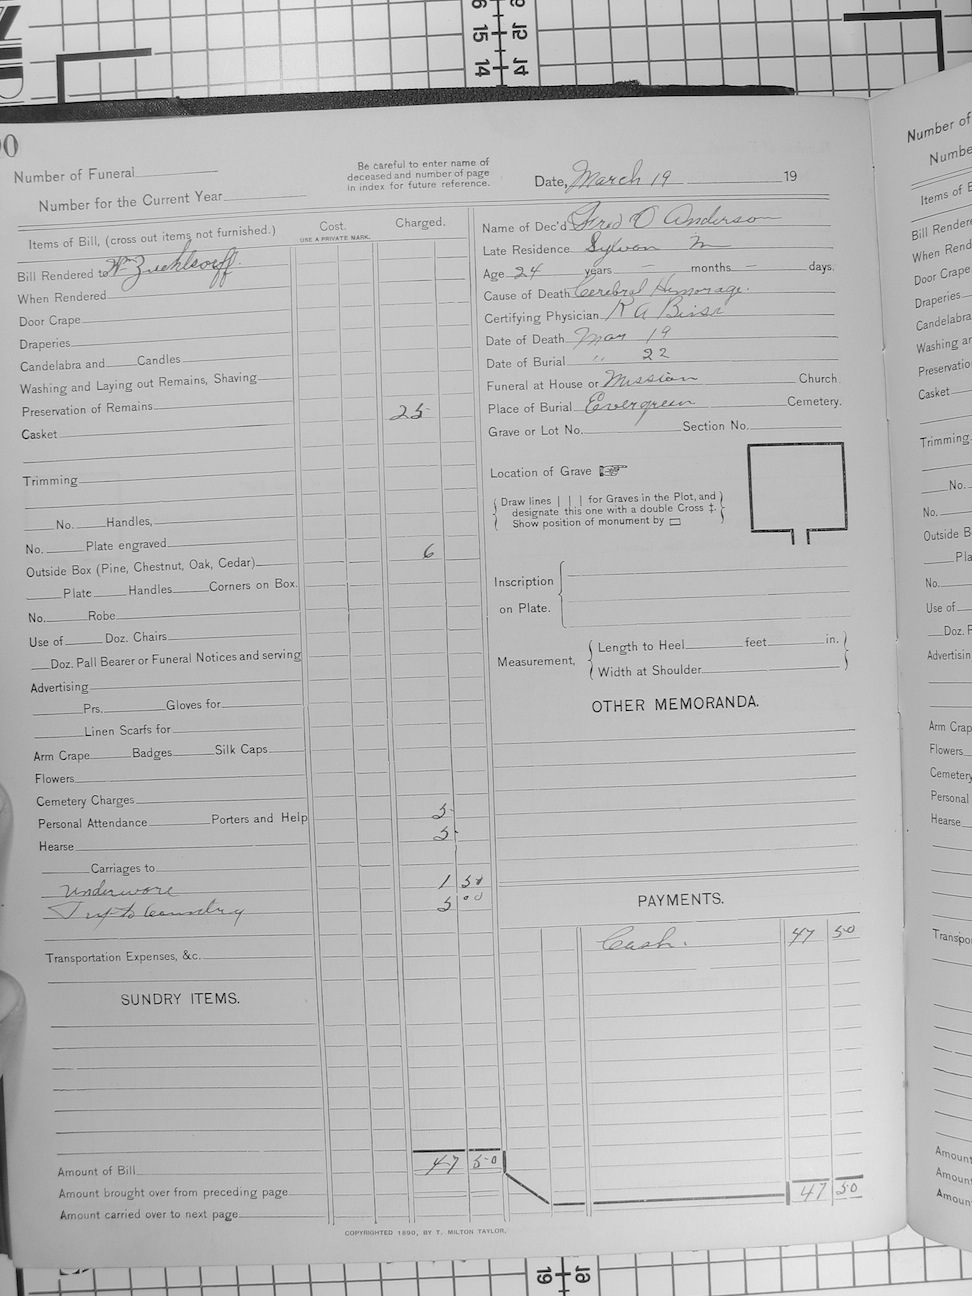 Number of Funeral
Number for the Current Year
Be careful to enter name of
deceased and number of page
in index for future reference.
Date, March 19 19
Items of Bill, (cross out items not furnished.)
Cost.
USE A PRIVATE MARK.
Charged.
Bill Rendered to Wm
When Rendered
Door Crape
Draperies
Candelabra and Candles
Washing and Laying out Remains, Shaving
Preservation of Remains
Casket 25
Trimming
No. Handles,
No. Plate engraved
Outside Box (Pine, Chestnut, Oak, Cedar) 6
Plate Handles Corners on Box.
No. Robe
Use of Doz. Chairs
Doz. Pall Bearer or Funeral Notices and serving
Advertising
Prs. Gloves for
Linen Scarfs for
Arm Crape Badges Silk Caps
Flowers
Cemetery Charges
Personal Attendance Porters and Help 5
Hearse 5
Carriages to
Underware 1 50
Trip to Country 5 00
Transportation Expenses, &c.
SUNDRY ITEMS.
Amount of Bill 47 50
Amount brought over from preceding page
Amount carried over to next page
Name of Dec'd Fred O Anderson
Late Residence Sylvan
Age 24 years — months — days.
Cause of Death Cerebral Hemorage.
Certifying Physician R A
Date of Death Mar 19
Date of Burial " 22
Funeral at House or Mission Church
Place of Burial Evergreen Cemetery.
Grave or Lot No. Section No.
Location of Grave
Draw lines | | | for Graves in the Plot, and
designate this one with a double Cross ‡.
Show position of monument by
Inscription
on Plate.
Measurement,
Length to Heel feet in.
Width at Shoulder
OTHER MEMORANDA.
PAYMENTS.
Cash. 47 50
47 50
COPYRIGHTED 1890, BY T. MILTON TAYLOR.
Number of
Number
Items of B
Bill Render
When Rend
Door Crape
Draperies
Candelabra
Washing ar
Preservatio
Casket
Trimming
No.
No.
Outside B
Pla
No.
Use of
Doz. P
Advertisin
Arm Crap
Flowers
Cemetery
Personal
Hearse
Transpo
Amount
Amount
Amoun
15
14
19